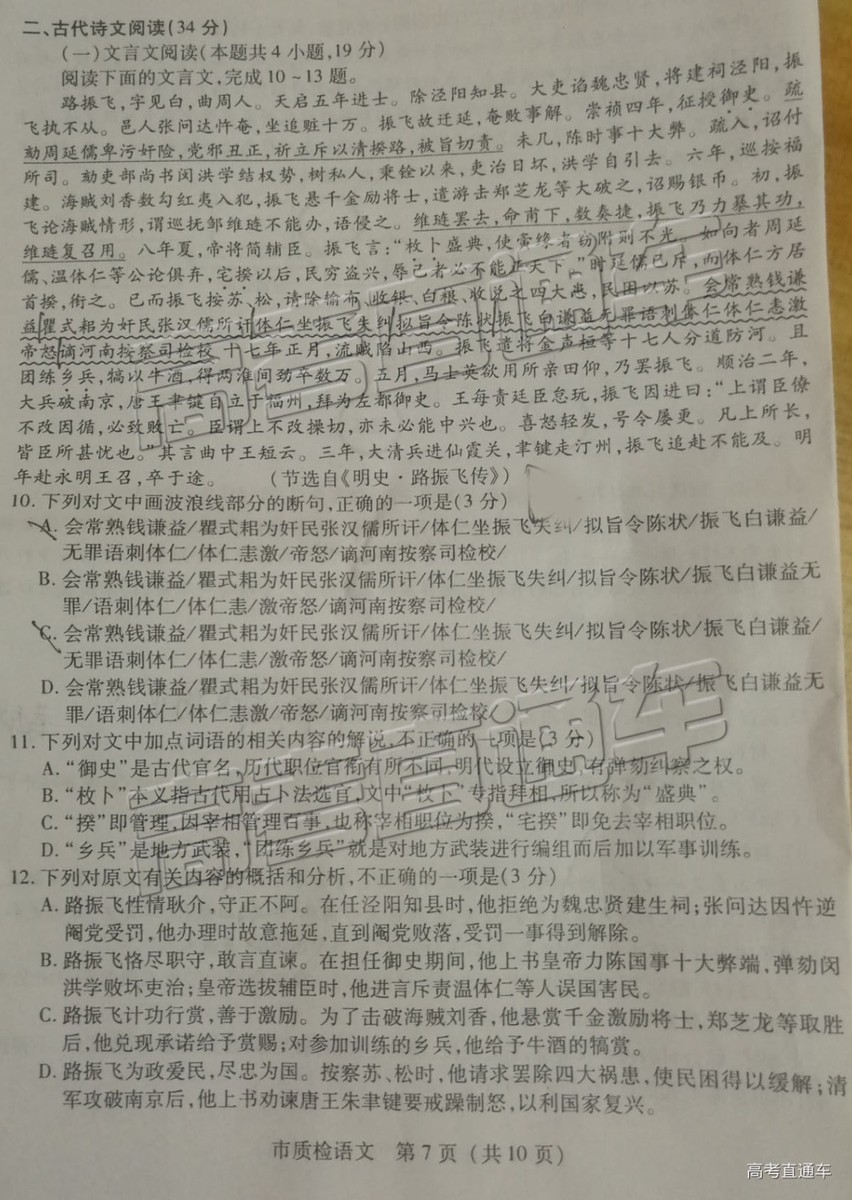 二、古代诗文阅读(34分)
(一)文言文阅读(本题共4小题,19分)
阅读下面的文言文,完成10~13题。
路振飞,字见白,曲周人。天启五年进士。除泾阳知县。大吏谄魏忠贤,将建祠泾阳,振
飞执不从。邑人张问达忤奄,坐追赃十万。振飞故迁延,奄败事解。崇祯四年,征授御史。疏
劾周延儒卑污奸险,党邪丑正,祈立斥以清揆路,被旨切责。未几,陈时事十大弊。疏入,诏付
所司。劾吏部尚书闵洪学结权势,树私人,秉铨以来,吏治日坏,洪学自引去。六年,巡按福
建。海贼刘香数勾红夷入犯,振飞悬千金励将士,遣游击郑芝龙等大破之,诏赐银币。初,振
飞论海贼情形,谓巡抚邹维琏不能办,语侵之。维琏罢去,命甫下,数奏捷,振飞乃力暴其功,
维琏复召用。八年夏,帝将简辅臣。振飞言:“枚卜盛典,使夤缘者窃附则不光。如向者周延
儒、温体仁等公论俱弃,宅揆以后,民穷盗兴,辱己者必不能正天下。”时延儒已斥,而体仁方居
首揆,衔之。已而振飞按苏、松,请除输布、收银、白粮、收兑之四大患,民困以苏。会常熟钱谦
益瞿式耜为奸民张汉儒所讦体仁坐振飞失纠拟旨令陈状振飞白谦益无罪语刺体仁体仁恚激
帝怒谪河南按察司检校 十七年正月,流贼陷山西。振飞遣将金声桓等十七人分道防河。且
团练乡兵,犒以牛酒,得两淮间劲卒数万。五月,马士英欲用所亲田仰,乃罢振飞。顺治二年,
大兵破南京,唐王聿键自立于福州,拜为左都御史。王每责廷臣怠玩,振飞因进曰:“上谓臣僚
不改因循,必致败亡。臣谓上不改操切,亦未必能中兴也。喜怒轻发,号令屡更。凡上所长,
皆臣所甚忧也。”其言曲中王短云。三年,大清兵进仙霞关,聿键走汀州,振飞追赴不能及。明
年赴永明王召,卒于途。 (节选自《明史·路振飞传》)
10. 下列对文中画波浪线部分的断句,正确的一项是(3分)
A. 会常熟钱谦益/瞿式耜为奸民张汉儒所讦/体仁坐振飞失纠/拟旨令陈状/振飞白谦益/
无罪语刺体仁/体仁恚激/帝怒/谪河南按察司检校/
B. 会常熟钱谦益/瞿式耜为奸民张汉儒所讦/体仁坐振飞失纠/拟旨令陈状/振飞白谦益无
罪/语刺体仁/体仁恚/激帝怒/谪河南按察司检校/
C. 会常熟钱谦益/瞿式耜为奸民张汉儒所讦/体仁坐振飞失纠/拟旨令陈状/振飞白谦益/
无罪语刺体仁/体仁恚/激帝怒/谪河南按察司检校/
D. 会常熟钱谦益/瞿式耜为奸民张汉儒所讦/体仁坐振飞失纠/拟旨令陈状/振飞白谦益无
罪/语刺体仁/体仁恚激/帝怒/谪河南按察司检校/
11. 下列对文中加点词语的相关内容的解说,不正确的一项是(3分)
A. “御史”是古代官名,历代职位官衔有所不同,明代设立御史,有弹劾纠察之权。
B. “枚卜”本义指古代用占卜法选官,文中“枚卜”专指拜相,所以称为“盛典”。
C. “揆”即管理,因宰相管理百事,也称宰相职位为揆,“宅揆”即免去宰相职位。
D. “乡兵”是地方武装,“团练乡兵”就是对地方武装进行编组而后加以军事训练。
12. 下列对原文有关内容的概括和分析,不正确的一项是(3分)
A. 路振飞性情耿介,守正不阿。在任泾阳知县时,他拒绝为魏忠贤建生祠;张问达因忤逆
阉党受罚,他办理时故意拖延,直到阉党败落,受罚一事得到解除。
B. 路振飞恪尽职守,敢言直谏。在担任御史期间,他上书皇帝力陈国事十大弊端,弹劾闵
洪学败坏吏治;皇帝选拔辅臣时,他进言斥责温体仁等人误国害民。
C. 路振飞计功行赏,善于激励。为了击破海贼刘香,他悬赏千金激励将士,郑芝龙等取胜
后,他兑现承诺给予赏赐;对参加训练的乡兵,他给予牛酒的犒赏。
D. 路振飞为政爱民,尽忠为国。按察苏、松时,他请求罢除四大祸患,使民困得以缓解;清
军攻破南京后,他上书劝谏唐王朱聿键要戒躁制怒,以利国家复兴。
市质检语文 第7页(共10页)
高考直通车